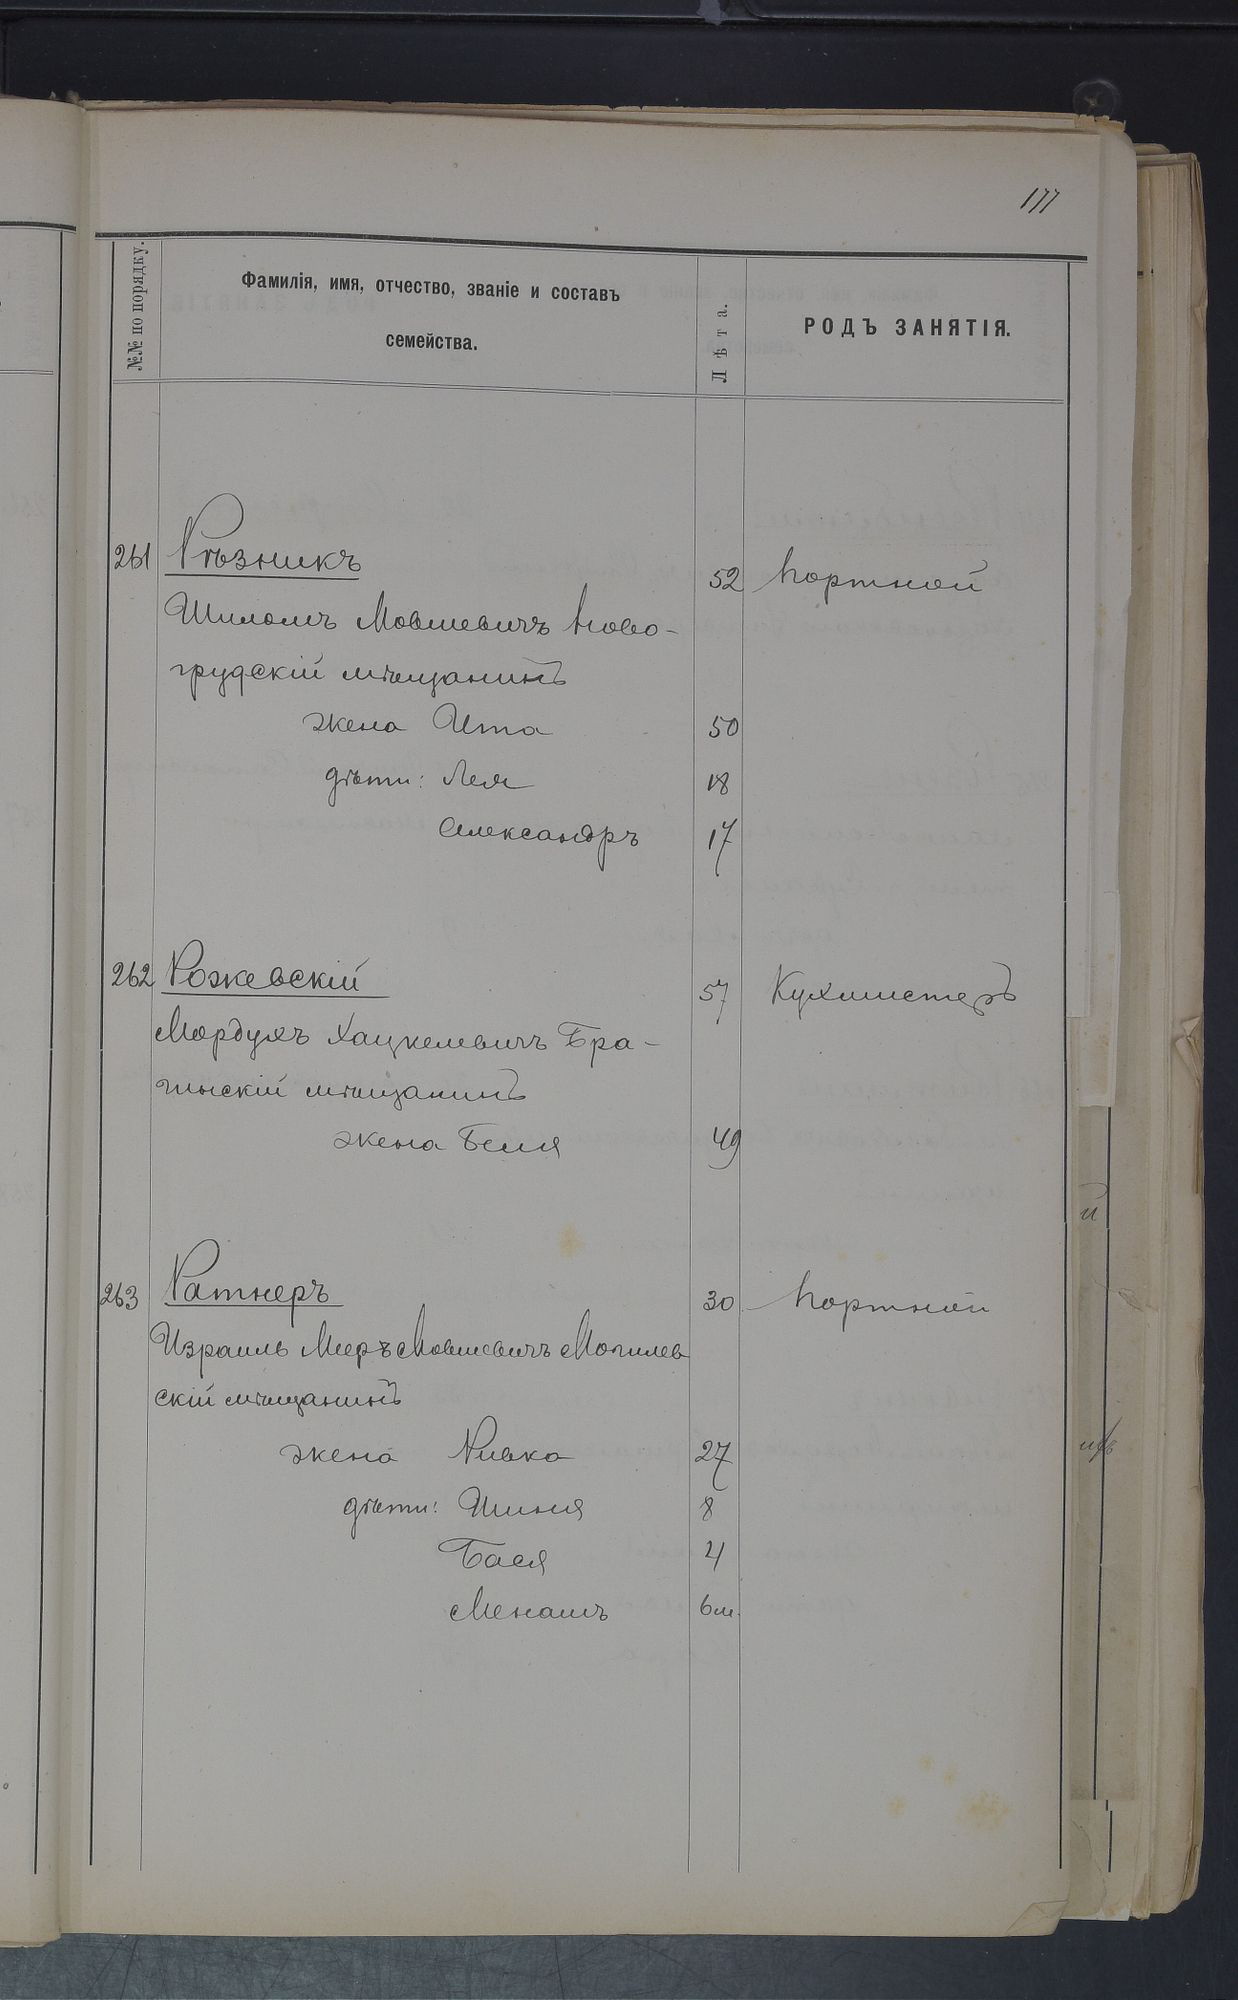 177
№№ по порядку.
Фамилія, имя, отчество, званіе и составъ
семейства.
Лѣта.
РОДЪ ЗАНЯТІЯ.
261 Рѣзникъ 52 Портной
Шиломъ Мовшевичъ Ново-
грудскій мѣщанинъ
жена Ита 50
дѣти: Лея 18
Александръ 17
262 Рожевскій 57 Кухмистеръ
Мордухъ Хацкелевичъ Бра-
гинскій мѣщанинъ
жена Беля 49
263 Ратнеръ 30 Портной
Израиль Мееръ Мовшевичъ Могилев
скій мѣщанинъ
жена Ривка 27
дѣти: Шиня 8
Бася 4
Менашъ 6 м.